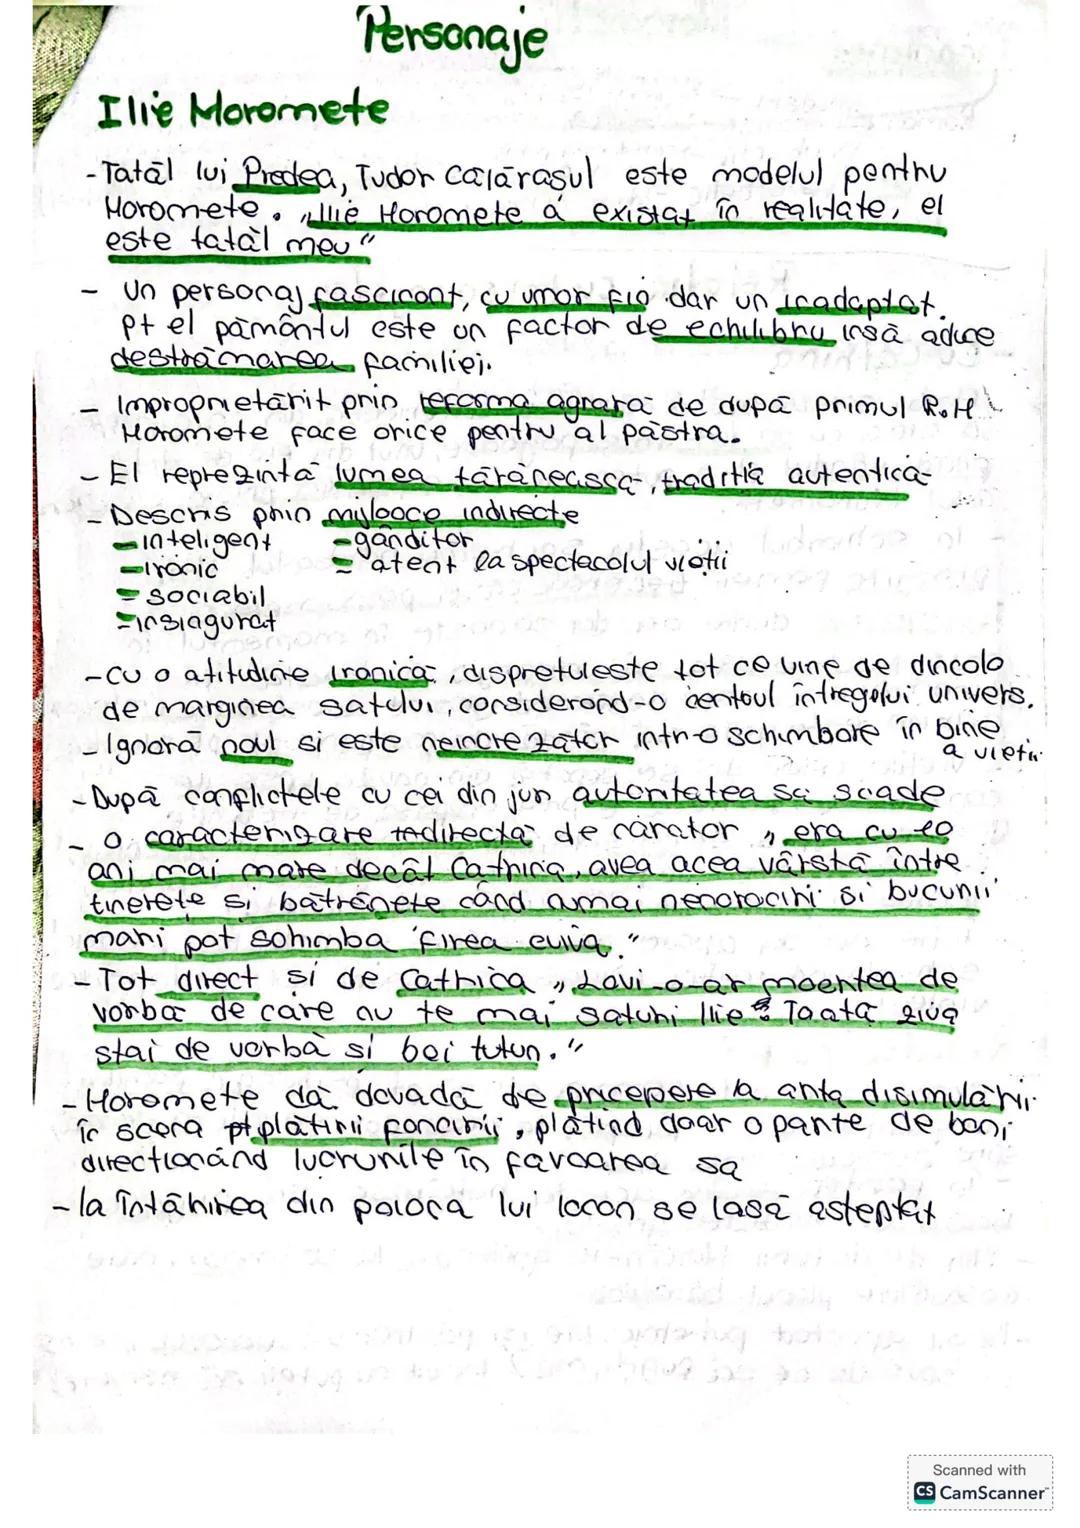 Personaje
Ilie Moromete
- Tatăl lui Predea, Tudor Călărașul este modelul pentru
Moromete. „Ilie Moromete a existat în realitate, el
este tatăl meu"
- Un personaj fascinant, cu umor fin dar un inadaptat.
Pt el pământul este un factor de echilibru însă aduce
destrămarea familiei.
- Improprietărit prin reforma agrară de după primul R.M
Moromete face orice pentru al păstra.
- El reprezintă lumea tărănească, traditia autentică
- Descris prin mijloace indirecte
- inteligent - gânditor
- ironic - atent la spectacolul vieții
- sociabil
- insiagurat
- cu o atitudine ironică, disprețuieste tot ce vine de dincolo
de marginea satului, considerând-o centrul întregului univers.
- Ignoră noul si este neincrezător intr-o schimbare în bine
a vietii
- După conflictele cu cei din jur autoritatea sa scade
- o caracterizare indirectă de narator „era cu 10
ani mai mare decât Catrina, avea acea vârstă între
tinerețe si bătrânețe când numai nenorociri si bucurii
mari pot schimba firea cuiva."
- Tot direct si de Catrica „Lovi-o-ar moartea de
vorbă de care nu te mai saturi Ilie! Toată ziua
stai de vorbă si bei tutun."
- Moromete dă dovadă de pricepere la arta disimulării
în scena pt plătirii fonciirii, plătind doar o parte de bani
direcționând lucrurile în favoarea sa
- la întâlnirea din poiana lui Iocan se lasă asteptat
Scanned with
CS CamScanner